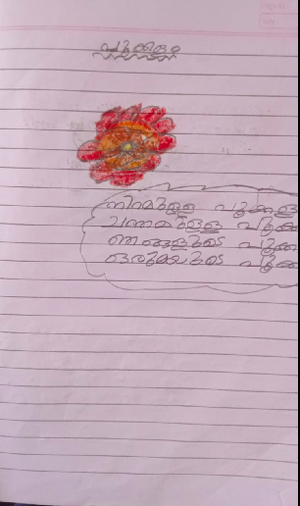 പൂക്കളം
നിറമുള്ള പൂക്കള
ചന്തമുള്ള പൂക്ക
ഞങ്ങളുടെ പൂക്ക
ഒരുമയുടെ പൂക്ക